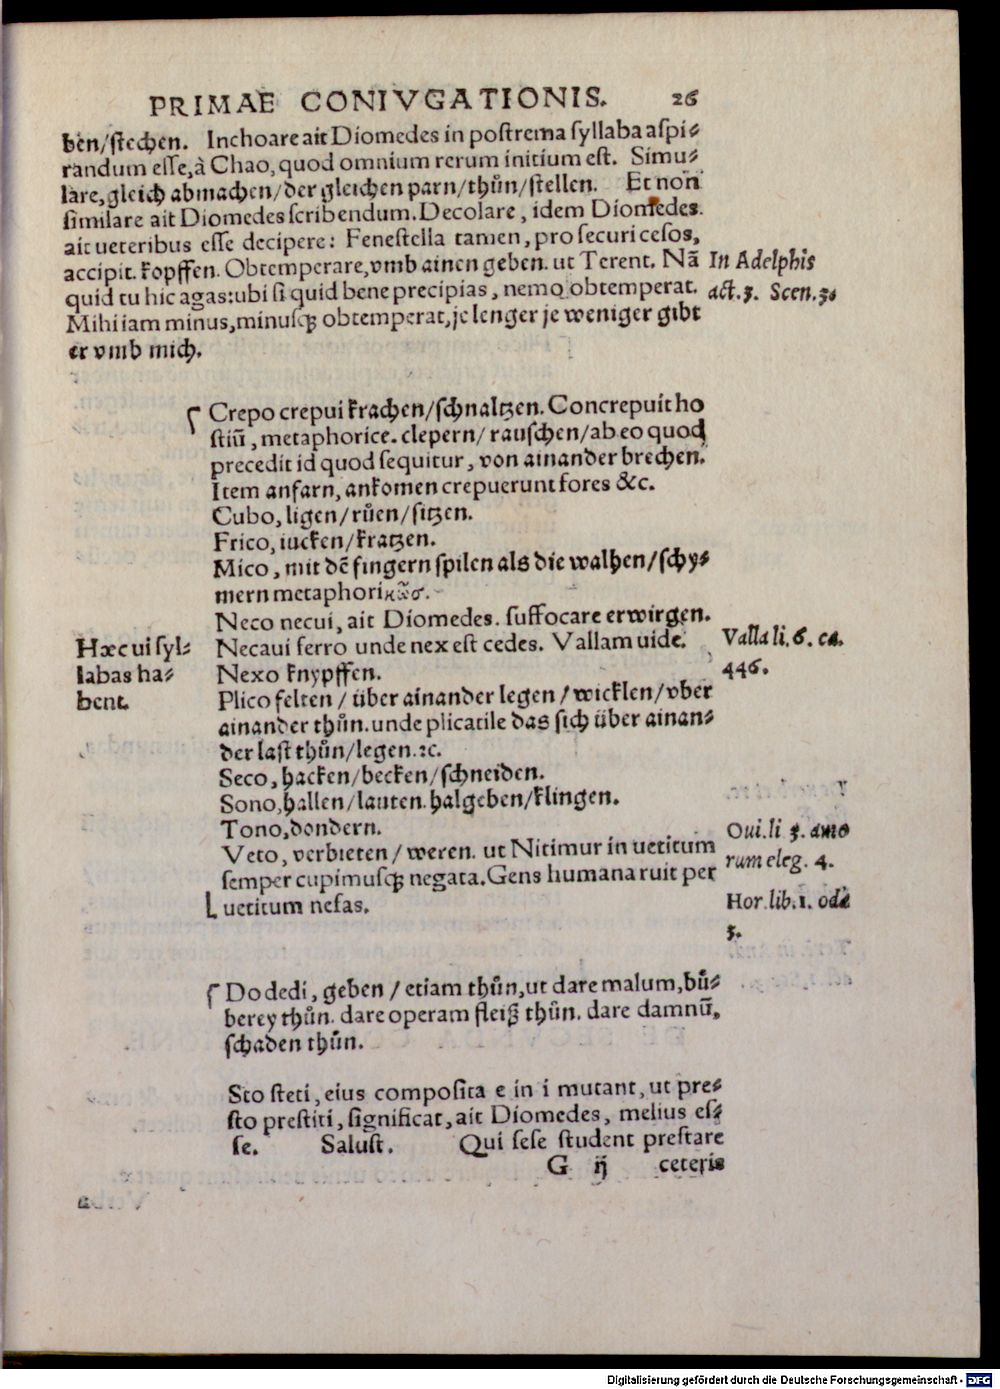 PRIMAE CONIVGATIONIS. 26
ben/stechen. Inchoare ait Diomedes in postrema syllaba aspi⸗
randum esse, à Chao, quod omnium rerum initium est. Simu⸗
lare, gleich abmachen/der gleichen parn/thůn/stellen. Et non
similare ait Diomedes scribendum. Decolare, idem Diomedes.
ait ueteribus esse decipere: Fenestella tamen, pro securi cesos,
accipit. kopffen. Obtemperare, vmb ainen geben. ut Terent. Nã
In Adelphis
quid tu hic agas: ubi si quid bene precipias, nemo obtemperat.
act. 3. Scen. 3.
Mihi iam minus, minusqꝫ obtemperat, je lenger je weniger gibt
er vmb mich.
Crepo crepui krachen/schnaltzen. Concrepuit ho
stiũ, metaphorice. clepern/rauschen/ab eo quod
precedit id quod sequitur, von ainander brechen.
Item anfarn, ankomen crepuerunt fores &c.
Cubo, ligen/růen/sitzen.
Frico, iucken/kratzen.
Mico, mit dẽ fingern spilen als die walhen/schy⸗
mern metaphoriκῶσ.
Neco necui, ait Diomedes. suffocare erwirgen.
Hæc ui syl⸗
labas ha⸗
bent.
Necaui ferro unde nex est cedes. Vallam uide.
Valla li. 6. ca.
446.
Nexo knypffen.
Plico felten / über ainander legen / wicklen/vber
ainander thůn. unde plicatile das sich über ainan⸗
der last thůn/legen. ⁊c.
Seco, hacken/becken/schneiden.
Sono, hallen/lauten. halgeben/klingen.
Tono, dondern.
Veto, verbieten / weren. ut Nitimur in uetitum
Oui. li 3. amo
rum eleg. 4.
semper cupimusqꝫ negata. Gens humana ruit per
uetitum nefas.
Hor. lib. 1. ode
3.
Do dedi, geben / etiam thůn, ut dare malum, bů⸗
berey thůn. dare operam fleiß thůn. dare damnũ,
schaden thůn.
Sto steti, eius composita e in i mutant, ut pre⸗
sto prestiti, significat, ait Diomedes, melius es⸗
se. Salust. Qui sese student prestare
G ij ceteris
Digitalisierung gefördert durch die Deutsche Forschungsgemeinschaft - DFG